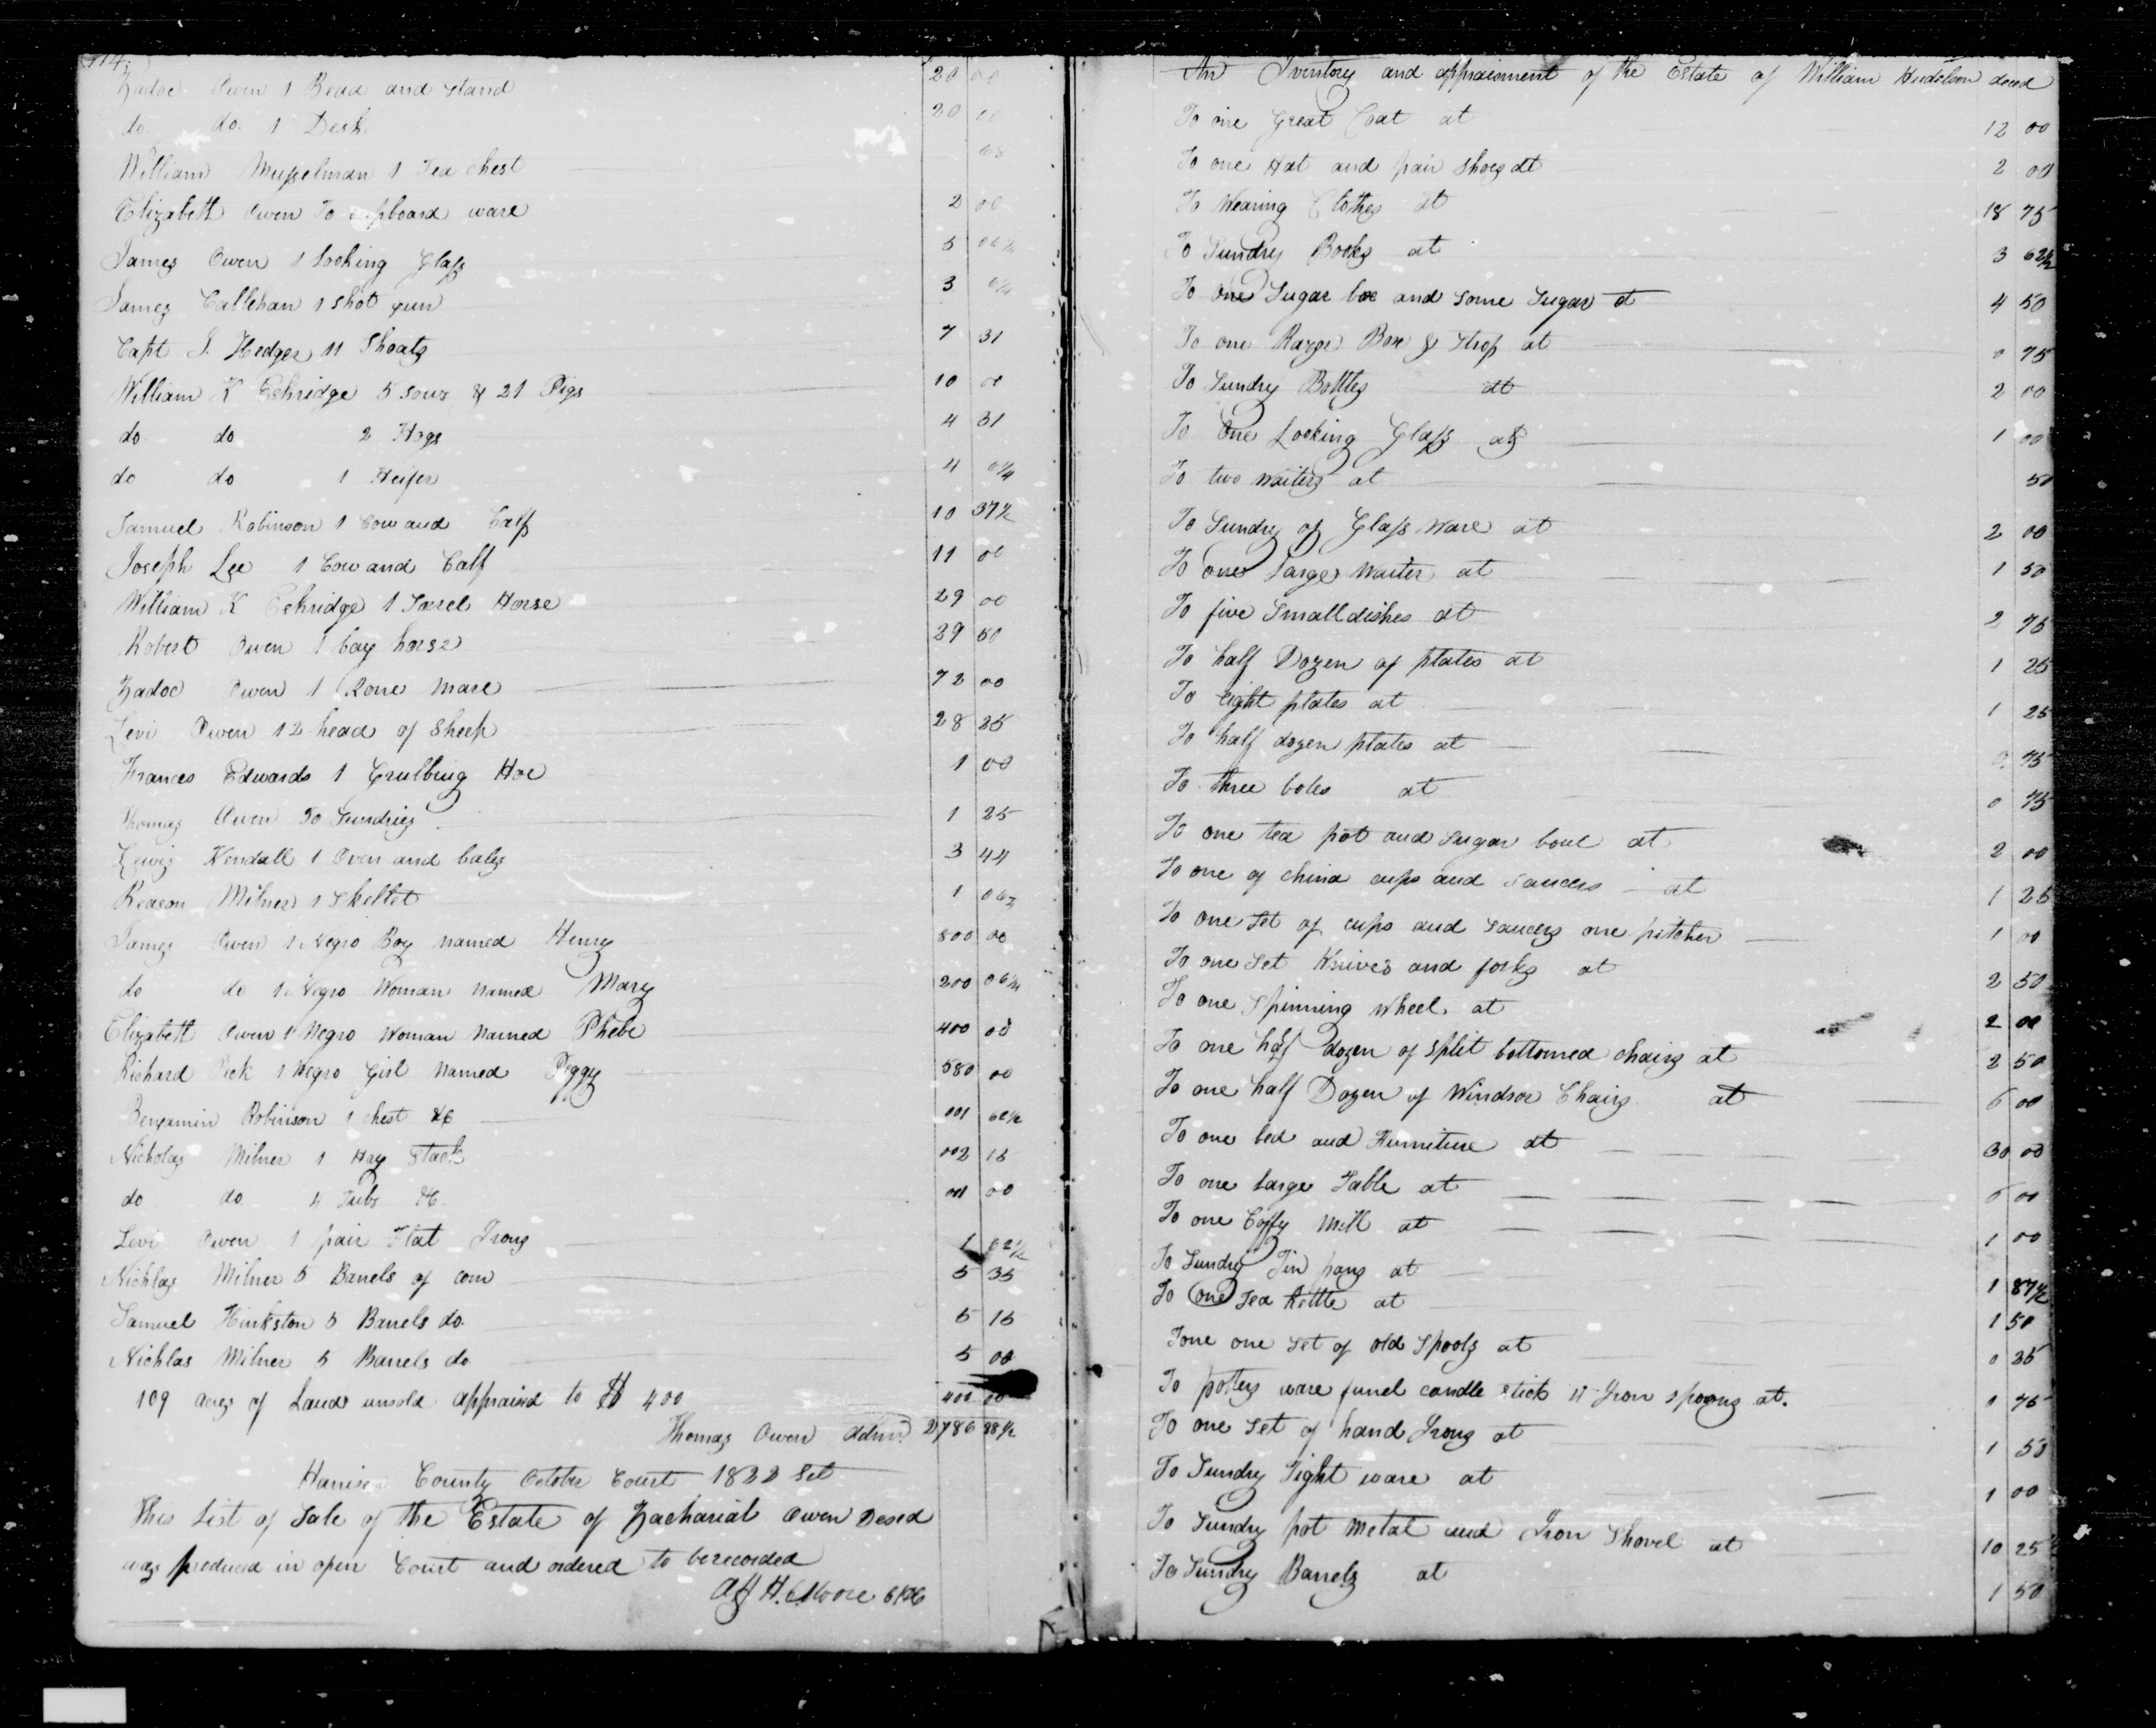 114
Zadoc Owen 1 Bead and stand 20 00
do do 1 Desk 20 00
William Musselman 1 Tea chest 68
Elizabeth Owen To cupboard ware 2 00
James Owen 1 Looking Glass 5 06 1/4
James Callehan 1 shot gun 3
Capt J. Hedges 11 Shoats 7 31
William K Eskridge 5 sows & 21 Pigs 10 00
do do 2 Hogs 4 31
do do 1 Heifer 4
Samuel Robinson 1 Cow and Calf 10 37 1/2
Joseph Lee 1 Cow and Calf 11 00
William K Eskridge 1 Sorrel Horse 29 00
Robert Owen 1 bay horse 29 50
Zadoc Owen 1 Rone mare 72 00
Levi Owen 12 head of sheep 28 25
Frances Edwards 1 Grubbing Hoe 1 00
Thomas Owen To Sundries 1 25
Lewis Kendall 1 Oven and bales 3 44
Reason Milner 1 Skellet 1
James Owen 1 Negro Boy named Henry 800 00
do do 1 Negro Woman named Mary 200 06 1/4
Elizabeth Owen 1 Negro Woman named Phebe 400 00
Richard Pick 1 Negro Girl named Peggy 580 00
Benjamin Robinson 1 chest &C 001 62 1/2
Nicholas Milner 1 Hay Stack 002 15
do do 4 Tubs &C. 001 00
Levi Owen 1 pair Flat Irons 1 62 1/2
Nichlas Milner 5 Barrels of corn 5 35
Samuel Hinkston 5 Barrels do. 5 15
Nichlas Milner 5 Barrels do 5 00
109 acres of Land unsold appraised to $ 400 400 00
Thomas Owen Admr. 2786 88 1/2
Harrison County October Court 1822 Sct
This List of Sale of the Estate of Zachariah Owen Desed
was produced in open Court and ordered to be recorded
Att H. C Moore
An Iventory and appraisment of the Estate of William Hudelson deced
To one Great Coat at 12 00
To one Hat and pair Shoes at 2 00
To Wearing Clothes at 18 75
To Sundry Books at 3 62 1/2
To one Sugar box and some Sugar at 4 50
To one Razor Box & Strop at 0 75
To Sundry Bottles at 2 00
To One Looking Glass at 1 00
To two waiters at 50
To Sundry of Glass Ware at 2 00
To one Large Waiter at 1 50
To five Small dishes at 2 75
To half Dozen of plates at 1 25
To eight plates at 1 25
To half dozen plates at 0 75
To three boles at 0 75
To one tea pot and sugar boul at 2 00
To one of china cups and saucers at 1 25
To one Set of cups and saucers one pitcher 1 00
To one Set Knives and forks at 2 50
To one Spinning Wheel. at 2 00
To one half dozen of split bottomed chairs at 2 50
To one half Dozen of Windsor Chairs at 6 00
To one bed and Furniture at 30 00
To one Large Table at 6 00
To one Coffy Mill at 1 00
To Sundry Tin pans at 1 87 1/2
To one Tea Kettle at 1 50
Tone one set of old Spools at 0 25
To potters ware funel candle stick 4 Iron spoons at. 0 75
To one Set of hand Irons at 1 50
To Sundry Tight ware at 1 00
To Sundry pot metal and Iron Shovel at 10 25
To Sundry Barrels at 1 50